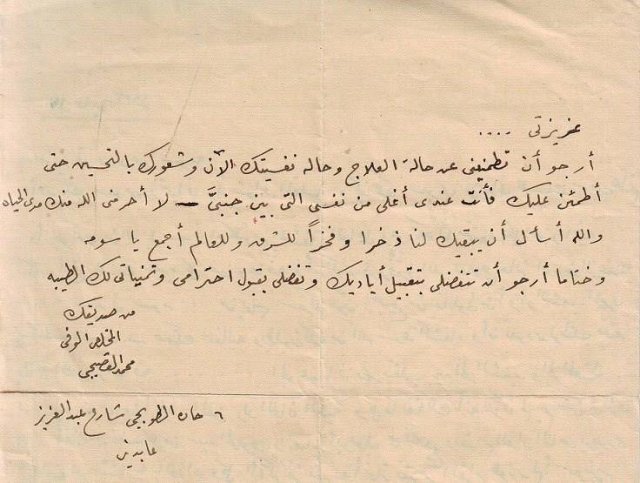 عزيزتى ....
أرجو أن تطمنينى عن حالة العلاج وحالة نفسيتك الآن وشعورك بالتحسين حتى
أطمئن عليك فأنت عندى أغلى من نفسى التى بين جنبىَّ - لا أحرمنى الله منك مدى الحياه
والله أسأل أن يبقيك لنا ذخرا وفخراً للشرق وللعالم أجمع يا سومه
وختاما أرجو أن تتفضلى بتقبيل أياديك وتفضلى بقبول احترامى وتمنياتى لك الطيبه
من صديقك
المخلص الوفى
محمد القصبجى
٦ حارة الطوبجى شارع عبد العزيز
عابدين